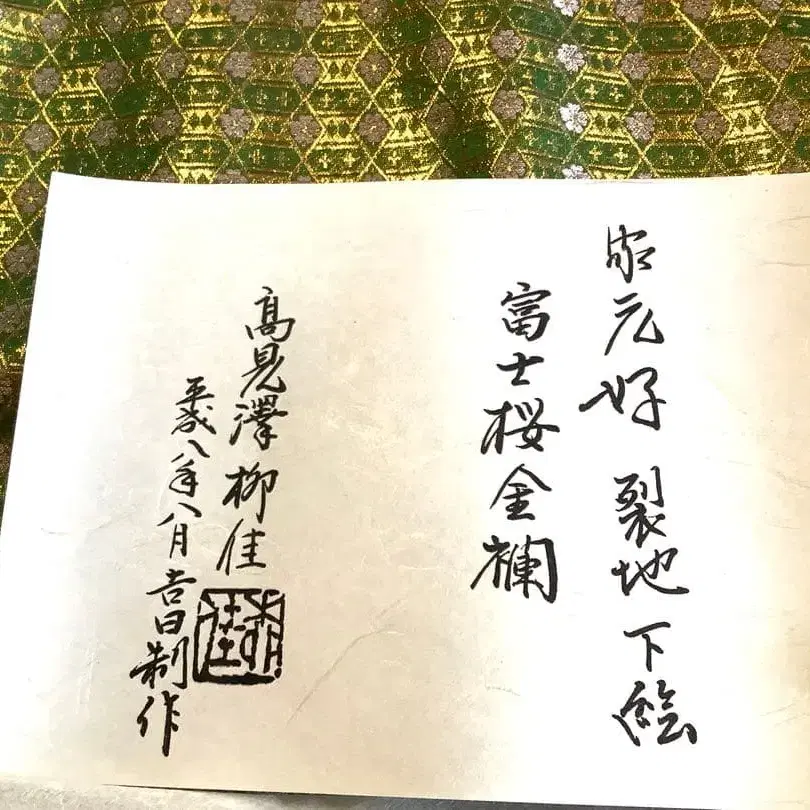 家元好 裂地下絵
富士桜金襴
高見澤柳佳
平成八年八月吉日制作